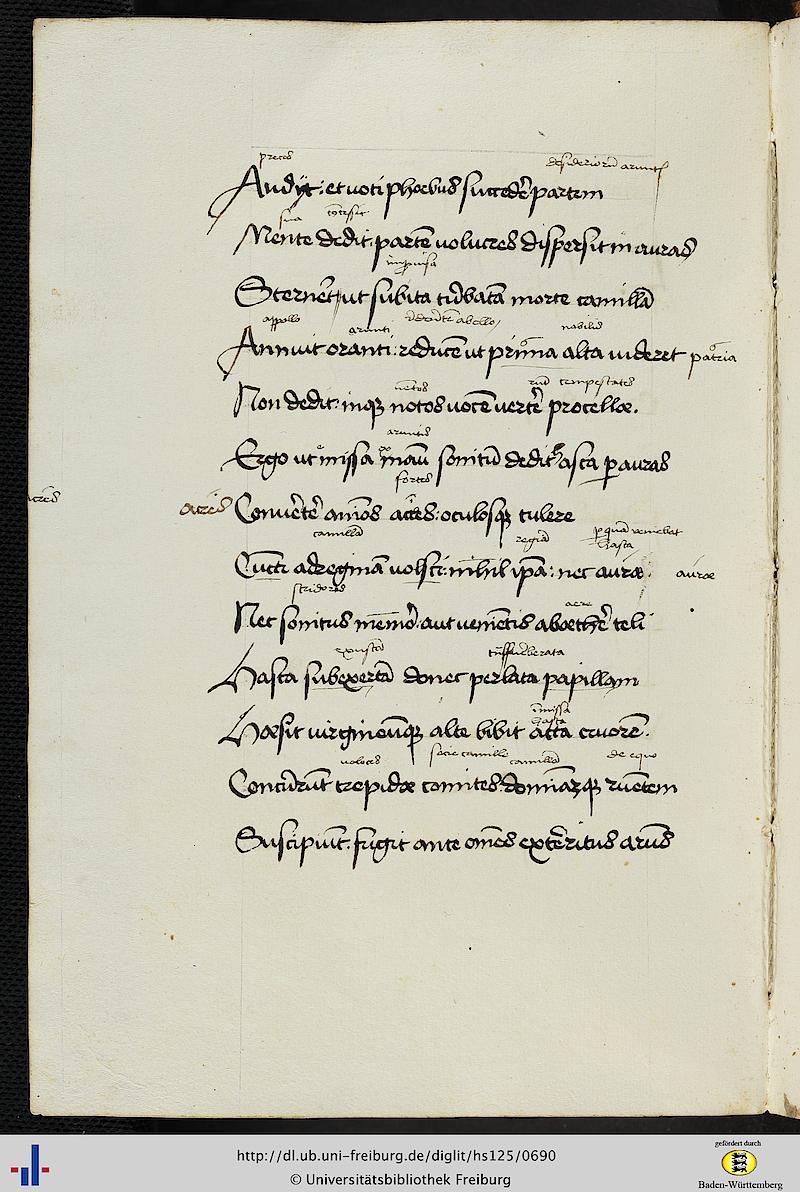 preces desideriorum aruntis
Audyt: et voti phoebus succedēˀ partem
sua concessit
Mente dedit: partē volucres dispersit in auras
improvisa
Sternēˀt ut subita tūrbatā morte camillā
appollo arunti redeūtē a bello nobilis
Annuit oranti: reducē ut prīma alta videret patria
ventos tempestates
Non dedit: inqꝫ notos vocē vertēˀ procellæ.
aruntis
Ergo ut missa manū sonitū dedit hasta p auras
fortes
acres
acres Convertēˀ aīmos acres: oculosqꝫ tulere
camillā regiā p quā veniebat hasta
Cūcti ad reginā volsci: nihil ipā: nec auræ auræ
stridores aere
Nec sonitus memōˀ: aut venietis ab oethēˀ teli
Hasta sub exertā donec perlata papillam
īmissa hasta
Hæsit virgineūqꝫ alte bibit acta cruorē.
veloces socie camille camillā de equo
Concurrūt trepidæ comites: domināqꝫ ruētem
Suscipiūt: fugit ante omēs exterritus arūs
http://dl.ub.uni-freiburg.de/diglit/hs125/0690
© Universitätsbibliothek Freiburg
gefördert durch
Baden-Württemberg